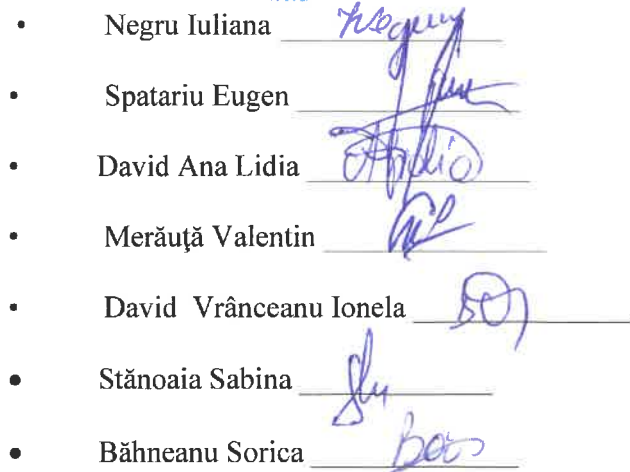 • Negru Iuliana
• Spatariu Eugen
• David Ana Lidia
• Merăuţă Valentin
• David Vrânceanu Ionela
• Stănoaia Sabina
• Băhneanu Sorica